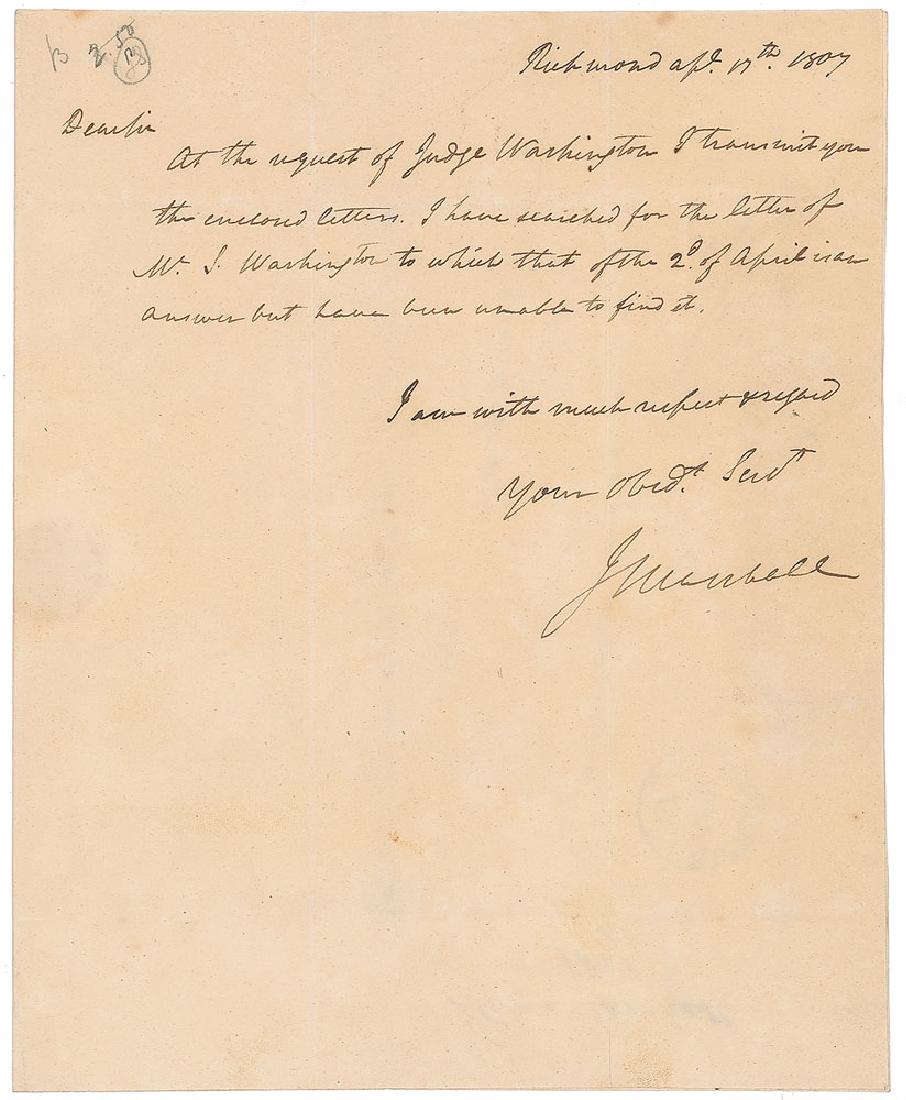 B 2.50
Richmond apl. 17th. 1807
Dear Sir
At the request of Judge Washington I transmit you
the enclosed letters. I have searched for the letter of
Mr. S. Washington to which that of the 2d. of April is an
answer but have been unable to find it.
I am with much respect & regard
Your Obedt. Servt
J Marshall